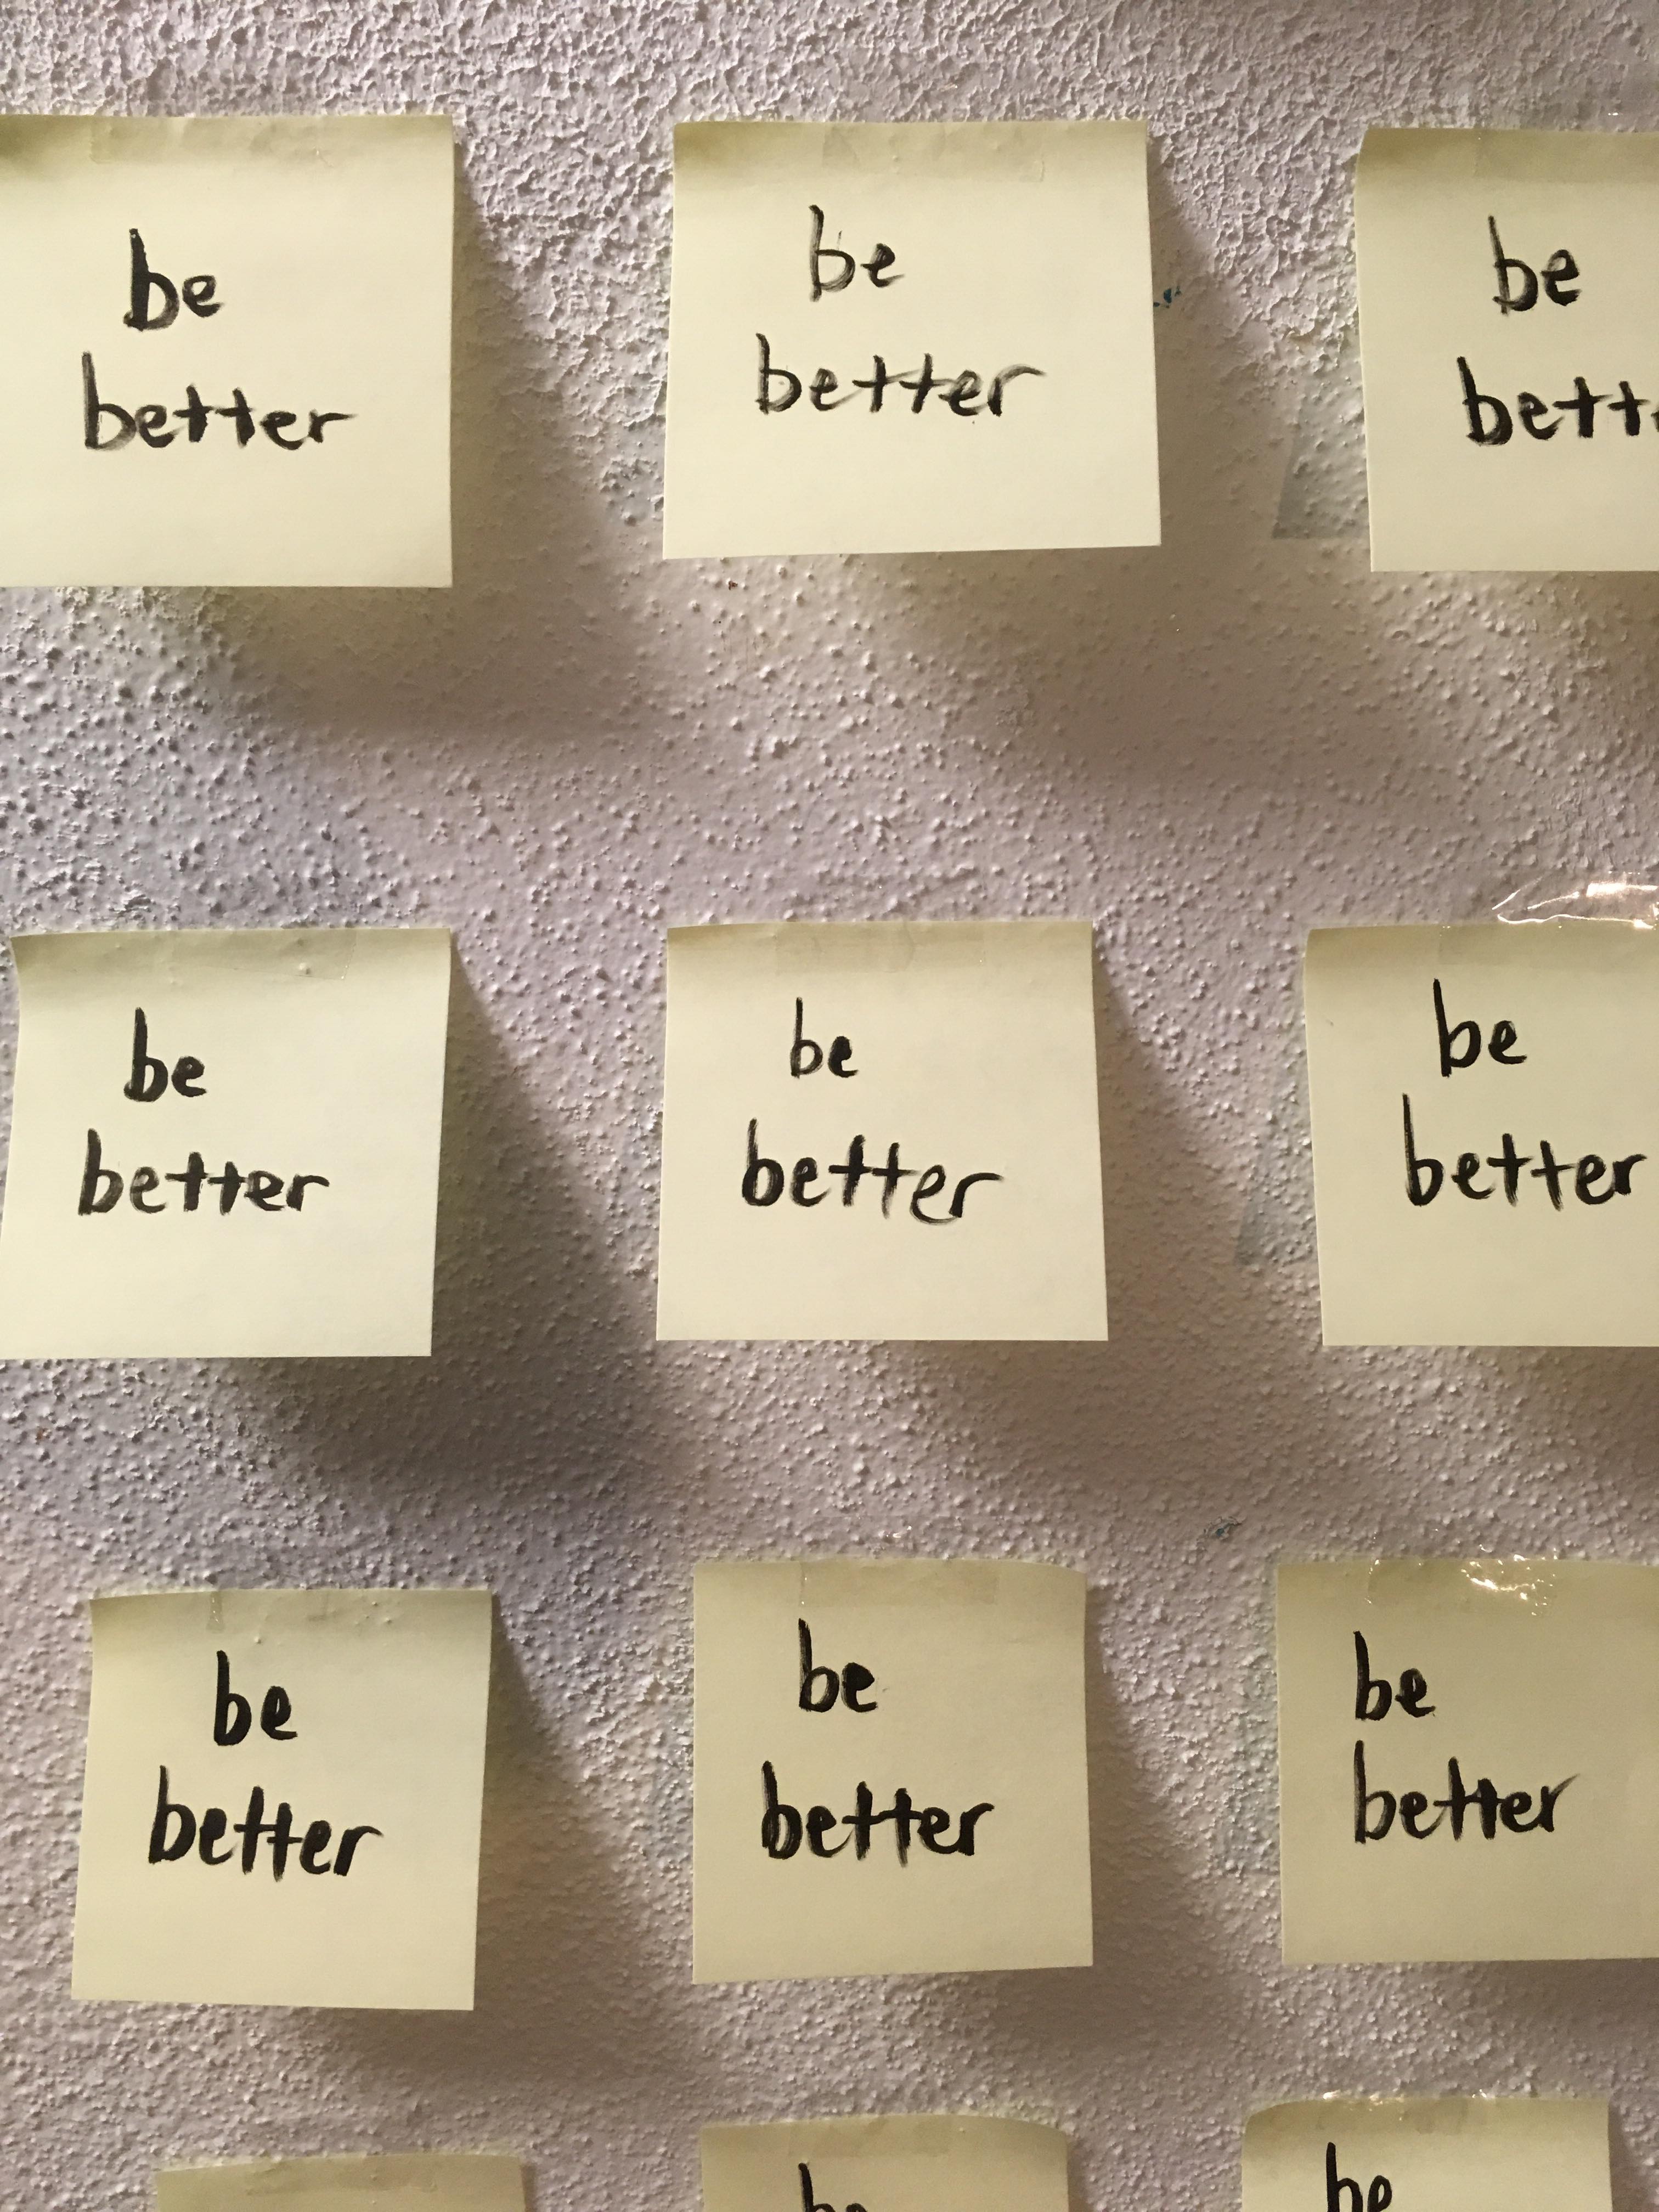 be
better
be
better
be
be
better
be
better
be
better
be
better
be
better
be
better
be
be